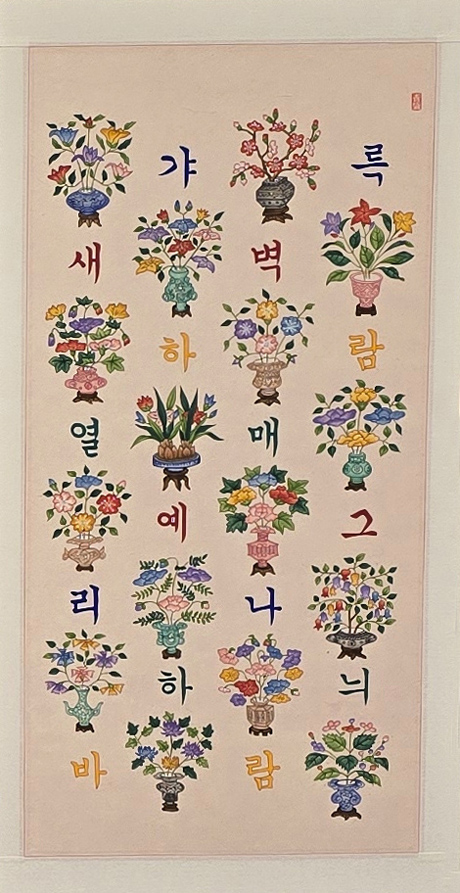 갸륵
새벽
하람
열매
예그
리나
하늬
바람